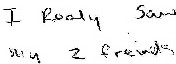 I Realy Saw
my 2 freinds